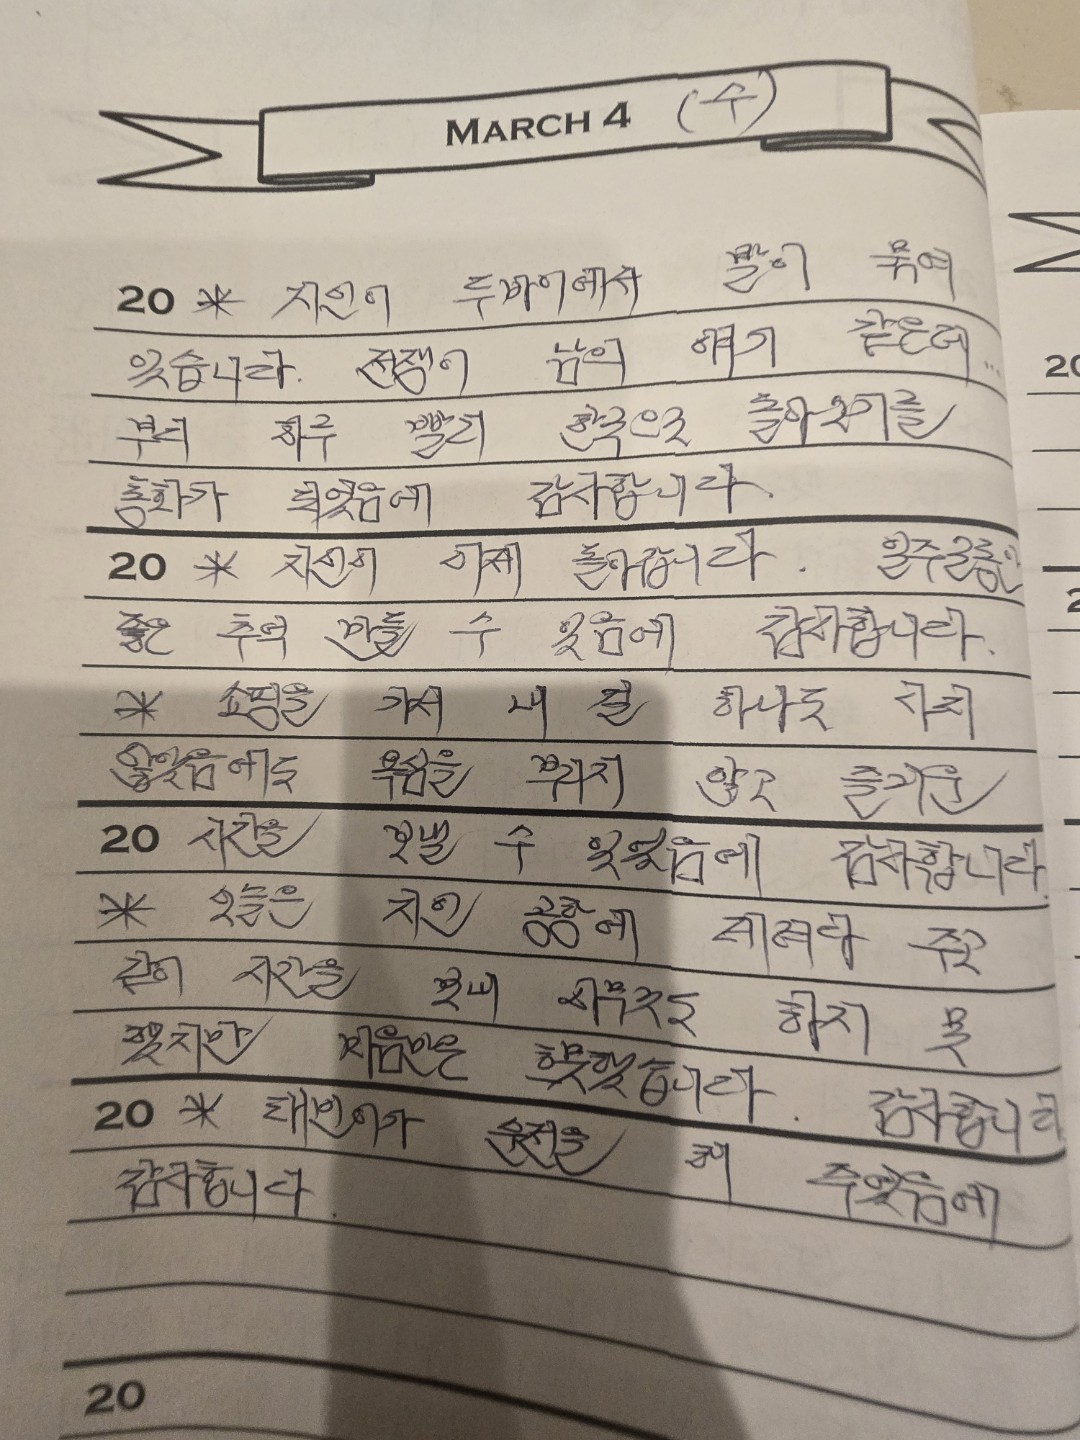 MARCH 4 (수)
20 * 지인이 두바이에서 발이 묶여
있습니다. 전쟁이 남의 얘기 같은데...
부디 하루 빨리 한국으로 돌아오기를
통화가 되었음에 감사합니다.
20 * 지인이 이제 돌아갑니다. 일주일동안
좋은 추억 만들 수 있음에 감사합니다.
* 쇼핑을 가서 내 걸 하나도 사지
않았음에도 욕심을 부리지 않고 즐거운
20 시간을 보낼 수 있었음에 감사합니다.
* 오늘은 지인 공항에 데려다 주고
같이 시간을 보내 아무것도 하지 못
했지만 마음만은 했습니다. 감사합니다
20 * 태민이가 운전을 해 주었음에
감사합니다.
20
20
2